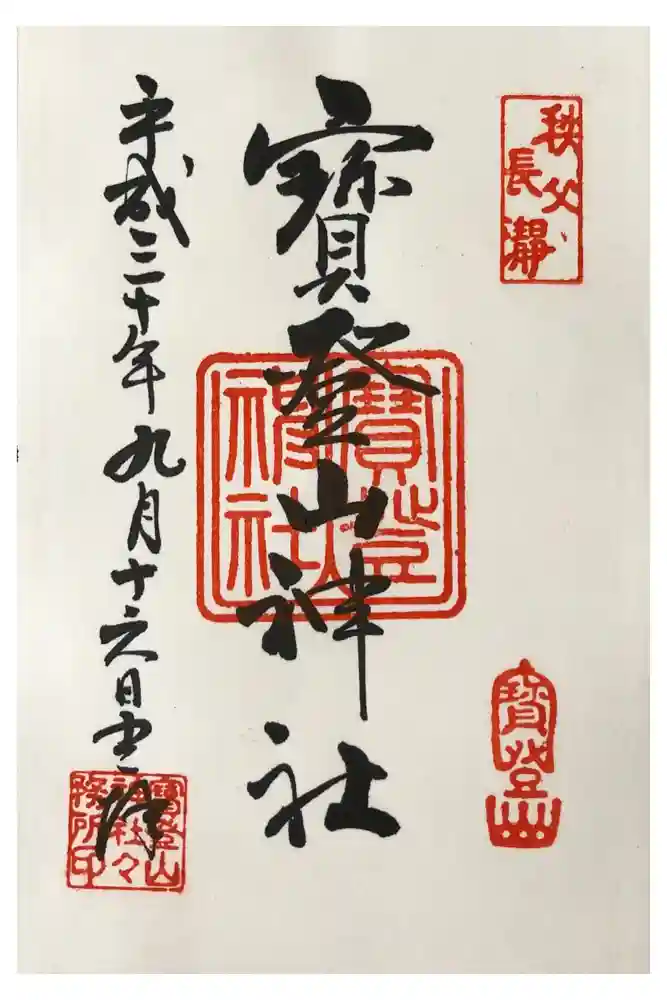 秩父
長瀞
寳登山神社
寳登山
寳登山
神社
平成三十年九月十六日
寳登山
神社々
務所印